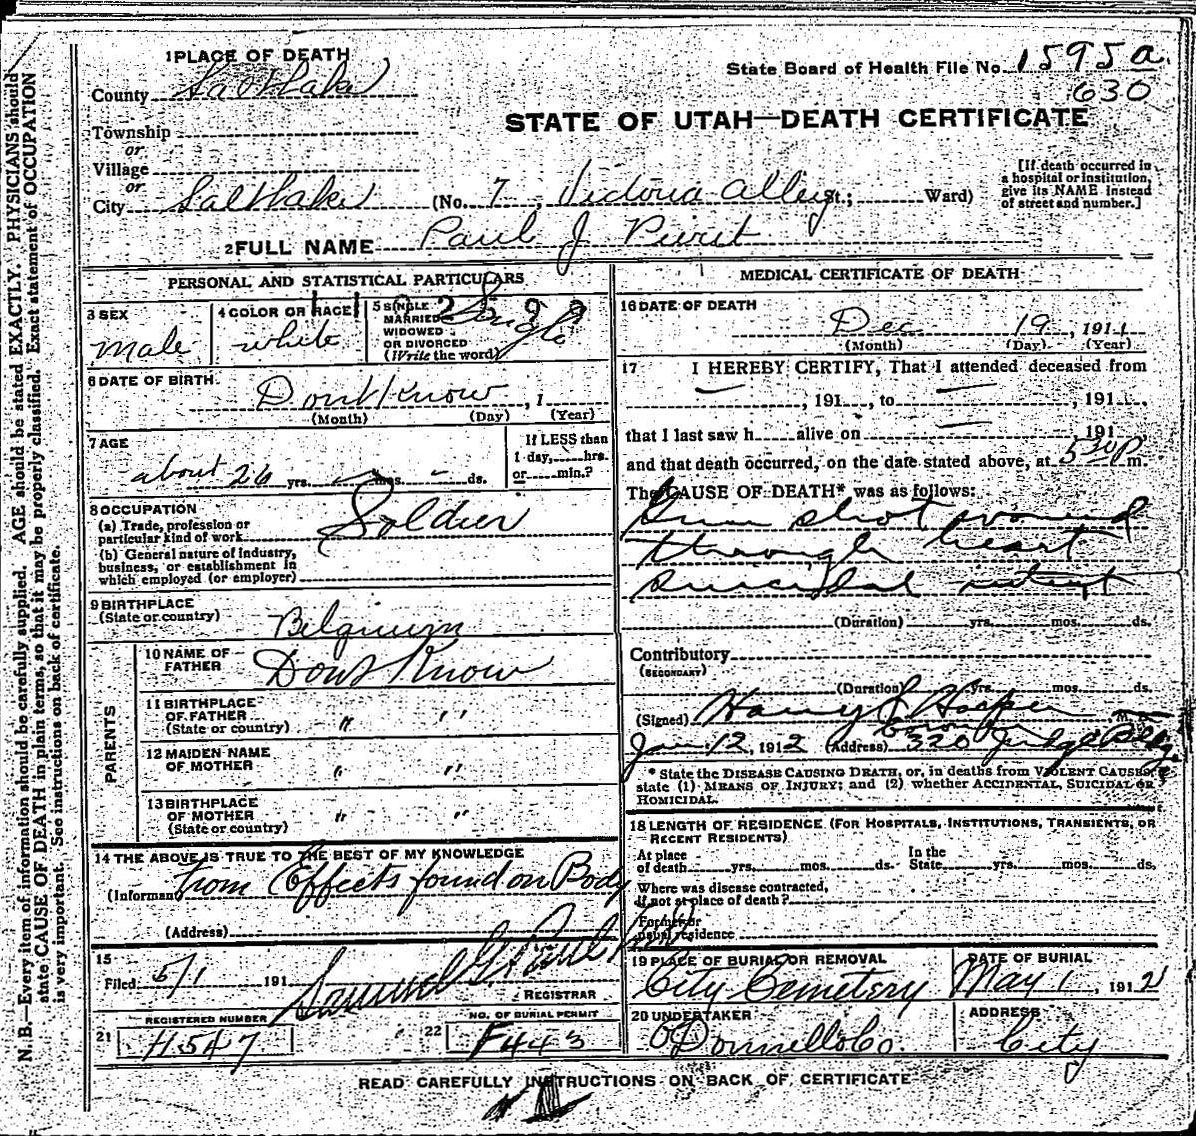 1 PLACE OF DEATH
State Board of Health File No. 1595a
630
County Salt Lake
STATE OF UTAH—DEATH CERTIFICATE
Township
or
Village
or
City Salt Lake (No. 7, Victoria Alley St.; Ward)
[If death occurred in
a hospital or institution,
give its NAME instead
of street and number.]
2 FULL NAME Paul J
PERSONAL AND STATISTICAL PARTICULARS
3 SEX
male
4 COLOR OR RACE
white
5 SINGLE
MARRIED
WIDOWED
OR DIVORCED
(Write the word)
Single
6 DATE OF BIRTH
Dont Know, 1
(Month) (Day) (Year)
7 AGE
about 26 yrs. mos. ds.
If LESS than
1 day, hrs.
or min.?
8 OCCUPATION
(a) Trade, profession or
particular kind of work
Soldier
(b) General nature of industry,
business, or establishment in
which employed (or employer)
9 BIRTHPLACE
(State or country)
Belgium
PARENTS
10 NAME OF
FATHER
Dont Know
11 BIRTHPLACE
OF FATHER
(State or country) " "
12 MAIDEN NAME
OF MOTHER " "
13 BIRTHPLACE
OF MOTHER
(State or country) " "
14 THE ABOVE IS TRUE TO THE BEST OF MY KNOWLEDGE
(Informant) from Effects found on Body
(Address)
15
Filed 5/1 191 Samuel G. Paul M.D.
REGISTRAR
REGISTERED NUMBER
21 H547
NO. OF BURIAL PERMIT
22 F443
MEDICAL CERTIFICATE OF DEATH
16 DATE OF DEATH
Dec 19, 1911
(Month) (Day) (Year)
17 I HEREBY CERTIFY, That I attended deceased from
, 191 , to , 191 ,
that I last saw h alive on 191
and that death occurred, on the date stated above, at 530 P m.
The CAUSE OF DEATH* was as follows:
Gun shot wound
through heart
suicidal intent
(Duration) yrs. mos. ds.
Contributory
(SECONDARY)
(Duration) yrs. mos. ds.
(Signed) Harry S Harper M.D.
Jan. 12, 1912 (Address) 320 Judge Bldg.
* State the DISEASE CAUSING DEATH, or, in deaths from VIOLENT CAUSES,
state (1) MEANS OF INJURY; and (2) whether ACCIDENTAL, SUICIDAL OR
HOMICIDAL.
18 LENGTH OF RESIDENCE (FOR HOSPITALS, INSTITUTIONS, TRANSIENTS, OR
RECENT RESIDENTS)
At place
of death yrs. mos. ds.
In the
State yrs. mos. ds.
Where was disease contracted,
if not at place of death?
Former or
usual residence
19 PLACE OF BURIAL OR REMOVAL
City Cemetery
DATE OF BURIAL
May 1, 1912
20 UNDERTAKER
O'Donnell & Co.
ADDRESS
City
READ CAREFULLY INSTRUCTIONS ON BACK OF CERTIFICATE
N. B.—Every item of information should be carefully supplied. AGE should be stated EXACTLY. PHYSICIANS should
state CAUSE OF DEATH in plain terms, so that it may be properly classified. Exact statement of OCCUPATION
is very important. See instructions on back of certificate.